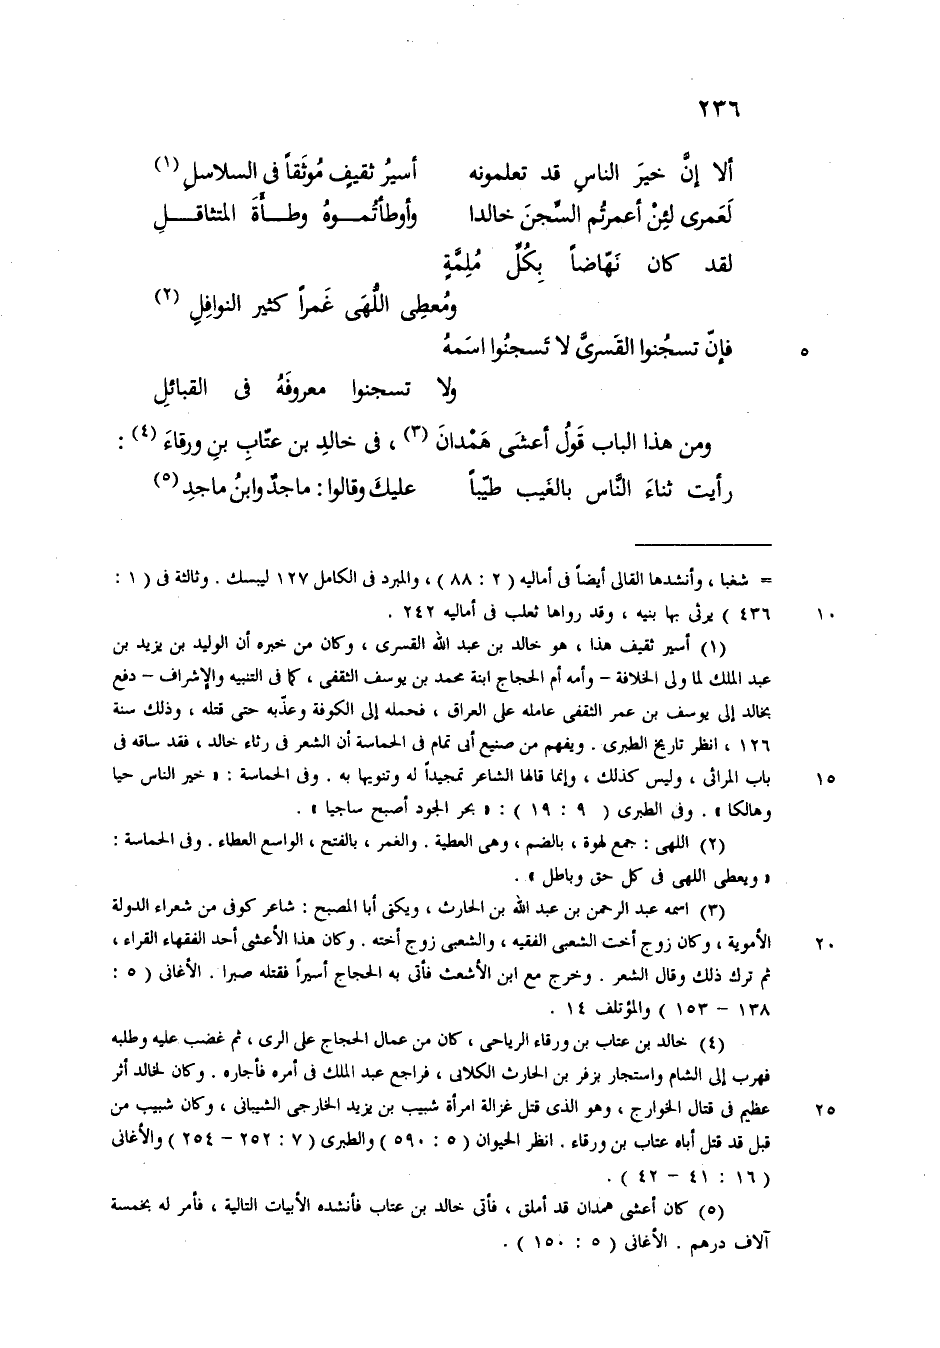 ٢٣٦
ألا إنَّ خيرَ الناسِ قد تعلمونه أسيرُ ثقيفٍ مُوثَقاً فى السلاسلِ (١)
لَعَمرى لئِنْ أعمرتُم السِّجنَ خالدا وأوطأتُمــوهُ وطــأَةَ المتثاقــلِ
لقد كان نَهّاضاً بِكُلِّ مُلِمَّةٍ
ومُعطِى اللُّهَى غَمراً كثير النوافِلِ (٢)
فإنّ تسجُنوا القَسرىَّ لا تَسجنُوا اسمَهُ ٥
ولا تسجنوا معروفَهُ فى القبائلِ
ومن هذا الباب قَولُ أعشَى هَمْدانَ (٣) ، فى خالدِ بن عتّابِ بنِ ورقاءَ (٤) :
رأيت ثناءَ النَّاس بالغَيب طيّباً عليكَ وقالوا : ماجدٌ وابنُ ماجدِ (٥)
= شغبا ، وأنشدها القالى أيضاً فى أماليه ( ٢ : ٨٨ ) ، والمبرد فى الكامل ١٢٧ ليبسك . وثالثة فى ( ١ :
٤٣٦ ) يرثى بها بنيه ، وقد رواها ثعلب فى أماليه ٢٤٢ . ١٠
(١) أسير ثقيف هذا ، هو خالد بن عبد الله القسرى ، وكان من خبره أن الوليد بن يزيد بن
عبد الملك لما ولى الخلافة – وأمه أم الحجاج ابنة محمد بن يوسف الثقفى ، كما فى التنبيه والإشراف – دفع
بخالد إلى يوسف بن عمر الثقفى عامله على العراق ، فحمله إلى الكوفة وعذّبه حتى قتله ، وذلك سنة
١٢٦ ، انظر تاريخ الطبرى . ويفهم من صنيع أبى تمام فى الحماسة أن الشعر فى رثاء خالد ، فقد ساقه فى
باب المراثى ، وليس كذلك ، وإنما قالها الشاعر تمجيداً له وتنويها به . وفى الحماسة : « خير الناس حيا ١٥
وهالكا » . وفى الطبرى ( ٩ : ١٩ ) : « بحر الجود أصبح ساجيا » .
(٢) اللهى : جمع لهوة ، بالضم ، وهى العطية . والغمر ، بالفتح ، الواسع العطاء . وفى الحماسة :
« ويعطى اللهى فى كل حق وباطل » .
(٣) اسمه عبد الرحمن بن عبد الله بن الحارث ، ويكنى أبا المصبح : شاعر كوفى من شعراء الدولة
الأموية ، وكان زوج أخت الشعبى الفقيه ، والشعبى زوج أخته . وكان هذا الأعشى أحد الفقهاء القراء ، ٢٠
ثم ترك ذلك وقال الشعر . وخرج مع ابن الأشعث فأتى به الحجاج أسيراً فقتله صبرا . الأغانى ( ٥ :
١٣٨ – ١٥٣ ) والمؤتلف ١٤ .
(٤) خالد بن عتاب بن ورقاء الرياحى ، كان من عمال الحجاج على الرى ، ثم غضب عليه وطلبه
فهرب إلى الشام واستجار بزفر بن الحارث الكلابى ، فراجع عبد الملك فى أمره فأجاره . وكان لخالد أثر
عظيم فى قتال الخوارج ، وهو الذى قتل غزالة امرأة شبيب بن يزيد الخارجى الشيبانى ، وكان شبيب من ٢٥
قبل قد قتل أباه عتاب بن ورقاء . انظر الحيوان ( ٥ : ٥٩٠ ) والطبرى ( ٧ : ٢٥٢ – ٢٥٤ ) والأغانى
( ١٦ : ٤١ – ٤٢ ) .
(٥) كان أعشى همدان قد أملق ، فأتى خالد بن عتاب فأنشده الأبيات التالية ، فأمر له بخمسة
آلاف درهم . الأغانى ( ٥ : ١٥٠ ) .